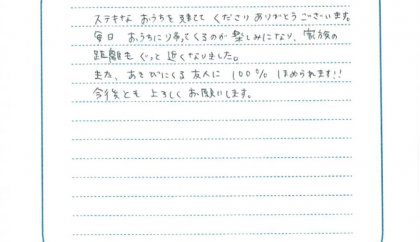 ステキな おうちを 建てて くださり ありがとう ございます。
毎日 おうちに 帰ってくるのが 楽しみになり、家族の
距離も ぐっと 近くなりました。
また、あそびにくる 友人に 100% ほめられます!!
今後とも よろしく お願いします。